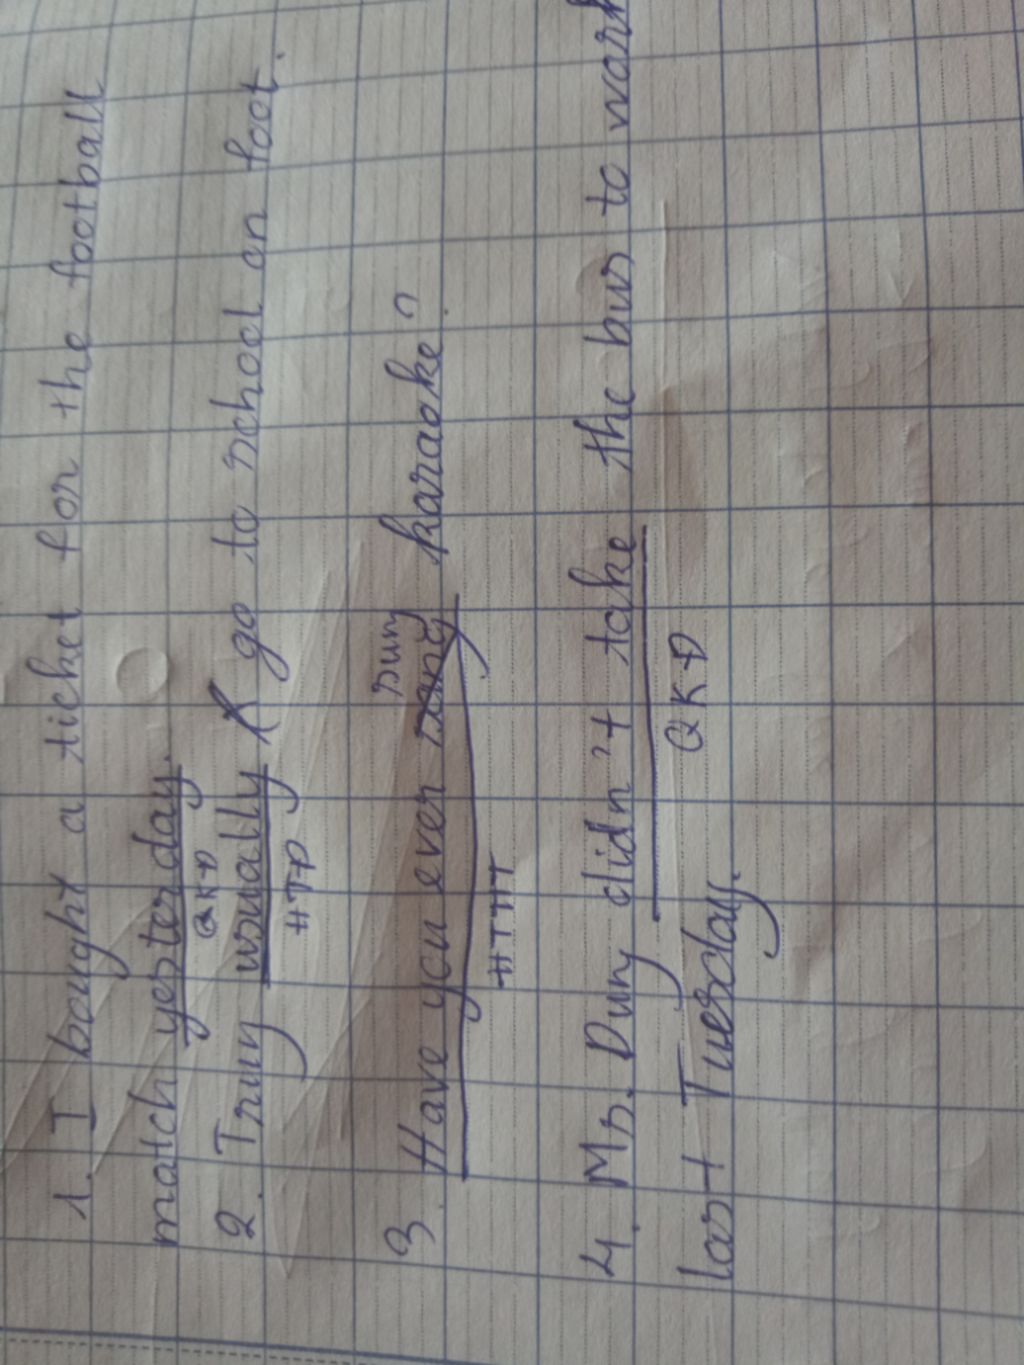 1. I bought a ticket for the football
match yesterday.
QKĐ
2. Trung usually go to school on foot.
HTĐ
sung
3. Have you ever karaoke?
HTHT
4. Ms. Dung didn't take the bus to work
QKĐ
last Tuesday.